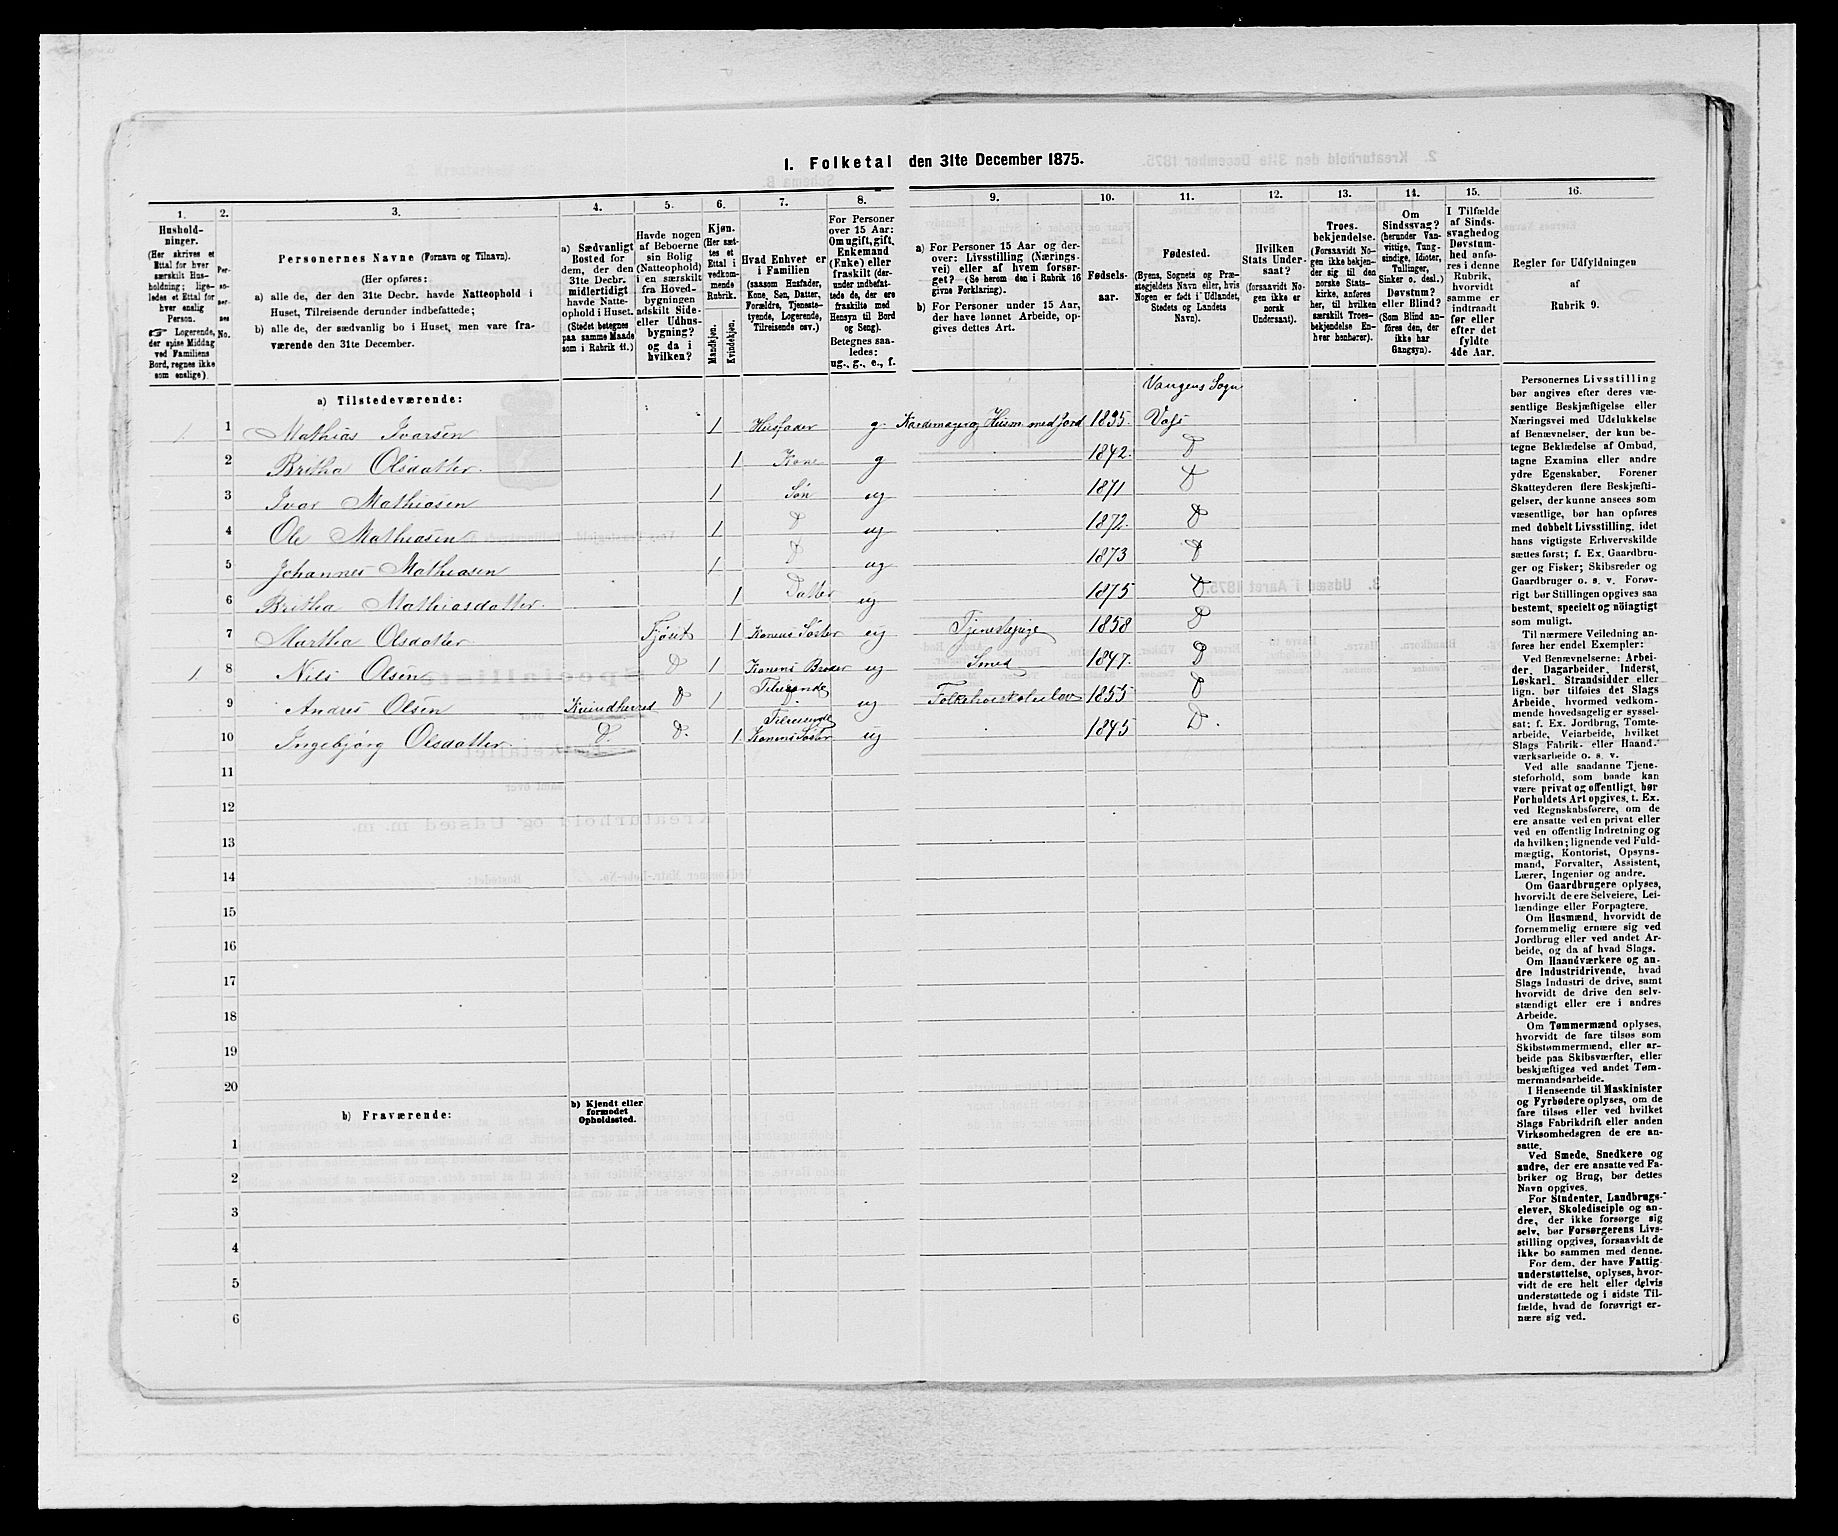 1. Folketal den 31te December 1875.
1.
2.
3.
4.
5.
6.
7.
8.
9.
10.
11.
12.
13.
14.
15.
16.
Hushold-
ninger.
(Her skrives et
Ettal for hver
særskilt Hus-
holdning; lige-
ledes et Ettal for
hver enslig
Person.
☞ Logerende,
der spise Middag
ved Familiens
Bord, regnes ikke
som enslige).
Per-
so-
ner-
nes
No.
Personernes Navne (Fornavn og Tilnavn).
(Her opføres:
a) alle de, der den 31te Decbr. havde Natteophold i
Huset, Tilreisende derunder indbefattede;
b) alle de, der sædvanlig bo i Huset, men vare fra-
værende den 31te December.
a) Sædvanligt
Bosted for
dem, der den
31te Decbr.
midlertidigt
havde Natte-
ophold i Huset.
(Stedet betegnes
paa samme Maade
som i Rubrik 11.)
Havde nogen
af Beboerne
sin Bolig
(Natteophold)
i en særskilt
fra Hoved-
bygningen
adskilt Side-
eller Udhus-
bygning?
og da i
hvilken?
Kjøn.
(Her sæt-
tes et
Ettal i
vedkom-
mende
Rubrik.
Mandkjøn.
Kvindekjøn.
Hvad Enhver er
i Familien
(saasom Husfader,
Kone, Søn, Datter,
Forældre, Tjeneste-
tyende, Logerende,
Tilreisende osv.)
For Personer
over 15 Aar:
Om ugift, gift,
Enkemand
(Enke) eller
fraskilt (der-
under indbefat-
tede de, der ere
fraskilte med
Hensyn til Bord
og Seng).
Betegnes saa-
ledes:
ug., g., e., f.
a) For Personer 15 Aar og der-
over: Livsstilling (Nærings-
vei) eller af hvem forsør-
get? (Se herom den i Rubrik 16
givne Forklaring).
b) For Personer under 15 Aar,
der have lønnet Arbeide, op-
gives dettes Art.
Fødsels-
aar.
Fødested.
(Byens, Sognets og Præ-
stegjeldets Navn eller, hvis
Nogen er født i Udlandet,
Stedets og Landets
Navn).
Hvilken
Stats Under-
saat?
(forsaavidt No-
gen ikke er
norsk
Undersaat).
Troes-
bekjendelse.
(Forsaavidt No-
gen ikke bekjen-
der sig til den
norske Stats-
kirke, anføres
her, til hvilken
særskilt Troes-
bekjendelse En-
hver henhører).
Om
Sindssvag?
(herunder Van-
vittige, Tung-
sindige, Idioter,
Tullinger,
Sinker o. desl.)
Døvstum?
eller Blind?
(Som Blind an-
føres den, der
ikke har
Gangsyn).
I Tilfælde
af Sinds-
svaghed og
Døvstum-
hed anfø-
res i denne
Rubrik,
hvorvidt
samme er
indtraadt
før eller
efter det
fyldte
4de Aar.
Regler for Udfyldningen
af
Rubrik 9.
a) Tilstedeværende:
Vangens Sogn
1 1 Mathias Ivarsen 1 Husfader g. Kardemager og Husm. med jord 1835. Vos
2 Britha Olsdatter. 1 Kone g 1842. D
3 Ivar Mathiasen 1 Søn ug 1871 D
4 Ole Mathiasen 1 D ug 1872. D
5 Johannes Mathiasen 1 D ug 1873 D
6 Britha Mathiasdatter. 1 Datter ug 1875 D
7 Martha Olsdatter Fjøset 1 Konens Søster ug Tjenestepige 1858 D
1 8 Nils Olsen D 1 Konens Broder ug Smed 1847. D
9 Andres Olsen Kvindherred D 1 Tilreisende D ug 1855 D
10 Ingebjørg Olsdatter. D. D. 1. Tilreisende Konens Søster ug 1845 D.
11
12
13
14
15
16
17
18
19
20
b) Fraværende:
b) Kjendt eller
formodet
Opholdssted.
1
2
3
4
5
6
Personernes Livsstilling
bør angives efter deres væ-
sentlige Beskjæftigelse eller
Næringsvei med Udelukkelse
af Benævnelser, der kun be-
tegne Beklædelse af Ombud,
tagne Examina eller andre
ydre Egenskaber. Forener
Skatteyderen flere Beskjæfti-
gelser, der kunne ansees som
væsentlige, bør han opføres
med dobbelt Livsstilling, idet
hans vigtigste Erhvervskilde
sættes først; f. Ex. Gaardbru-
ger og Fisker; Skibsreder og
Gaardbruger o. s. v. Forøv-
rigt bør Stillingen opgives saa
bestemt, specielt og nøiagtigt
som muligt.
Til nærmere Veiledning an-
føres her endel Exempler:
Ved Benævnelserne: Arbei-
der, Dagarbeider, Inderst,
Løskarl, Strandsidder eller
lign. bør tilføies det Slags
Arbeide, hvormed vedkom-
mende hovedsagelig er syssel-
sat; f. Ex. Jordbrug, Tomte-
arbeide, Veiarbeide, hvilket
Slags Fabrik- eller Haand-
værksarbeide o. s. v.
Ved alle saadanne Tjene-
steforhold, som baade kan
være privat og offentligt, bør
Forholdets Art opgives, t. Ex.
ved Regnskabsførere, om de
ere ansatte ved en privat eller
ved en offentlig Indretning og
da hvilken; lignende ved Fuld-
mægtig, Kontorist, Opsyns-
mand, Forvalter, Assistent,
Lærer, Ingeniør og andre.
Om Gaardbrugere oplyses,
hvorvidt de ere Selveiere, Lei-
lændinge eller Forpagtere.
Om Husmænd, hvorvidt de
fornemmelig ernære sig ved
Jordbrug eller ved andet Ar-
beide, og da af hvad Slags.
Om Haandværkere og an-
dre Industridrivende, hvad
Slags Industri de drive, samt
hvorvidt de drive den selv-
stændigt eller ere i andres
Arbeide.
Om Tømmermænd oplyses,
hvorvidt de fare tilsøs som
Skibstømmermænd, eller ar-
beide paa Skibsværfter, eller
beskjæftiges ved andet Tøm-
mermandsarbeide.
I Henseende til Maskinister
og Fyrbødere oplyses, om de
fare tilsøs eller ved hvilket
Slags Fabrikdrift eller anden
Virksomhedsgren de ere an-
satte.
Ved Smede, Snedkere og
andre, der ere ansatte ved Fa-
briker og Brug, bør dettes
Navn opgives.
For Studenter, Landbrugs-
elever, Skoledisciple og an-
dre, der ikke forsørge sig
selv, bør Forsørgerens Livs-
stilling opgives, forsaavidt de
ikke bo sammen med denne.
For dem, der have Fattig-
understøttelse, oplyses, hvor-
vidt de ere helt eller delvis
understøttede og i sidste Til-
fælde, hvad de forøvrigt er-
nære sig ved.